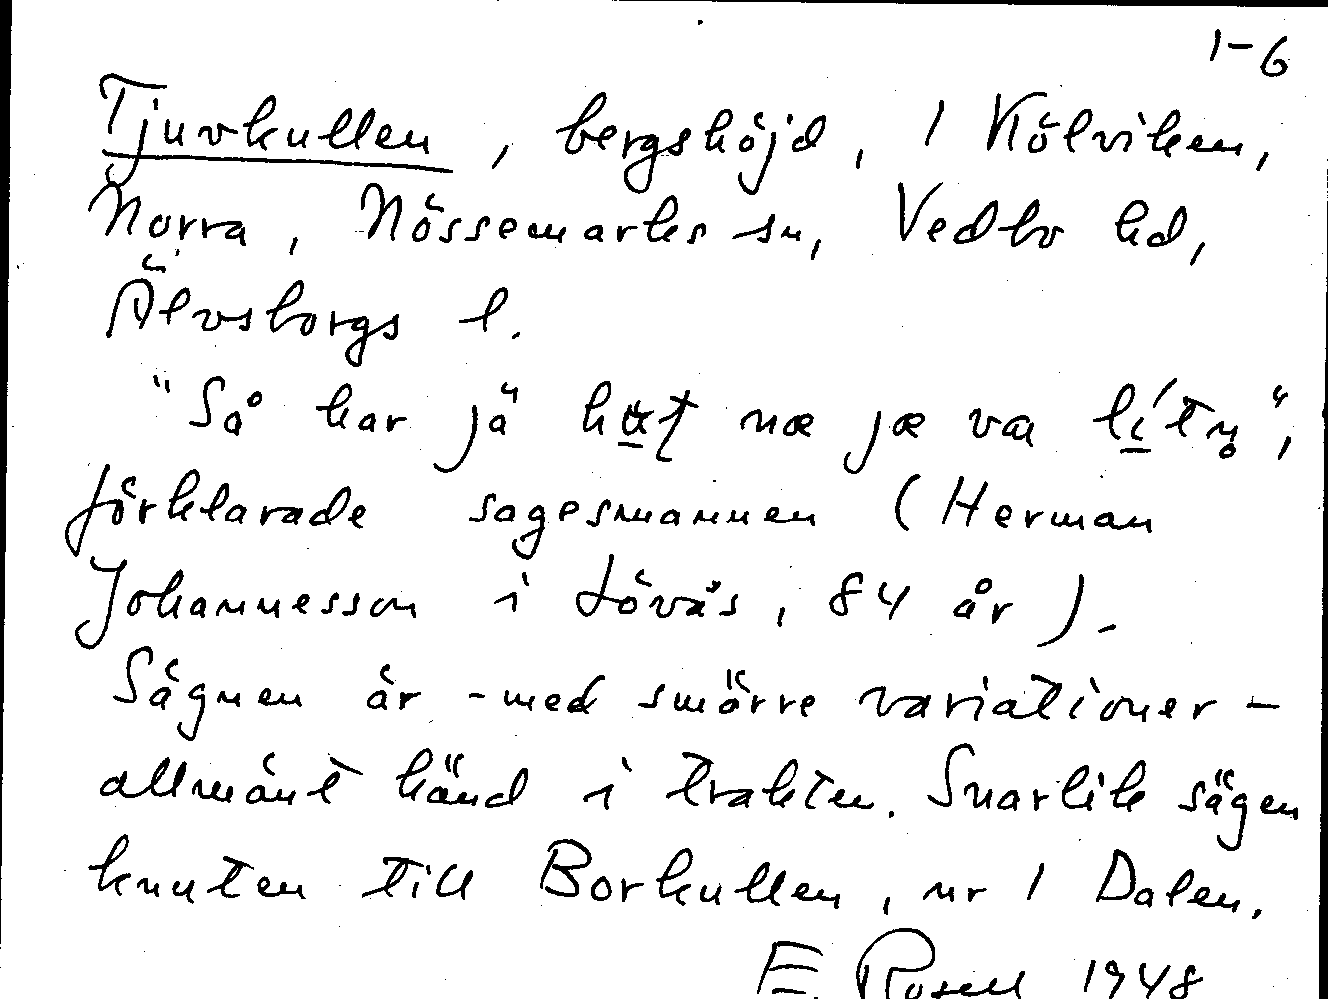 1-6
Tjuvkullen, bergshöjd, 1 Kölviken,
Norra, Nössemarks sn, Vedbo hd,
Älvsborgs l.
"Så har jä næ jæ va
förklarade sagesmannen (Herman
Johannesson i Lövås, 84 år).
Sägnen är - med smärre variationer -
allmänt känd i trakten. Snarlik sägen
knuten till Borkullen, nr 1 Dalen.
E. Rosell 1948